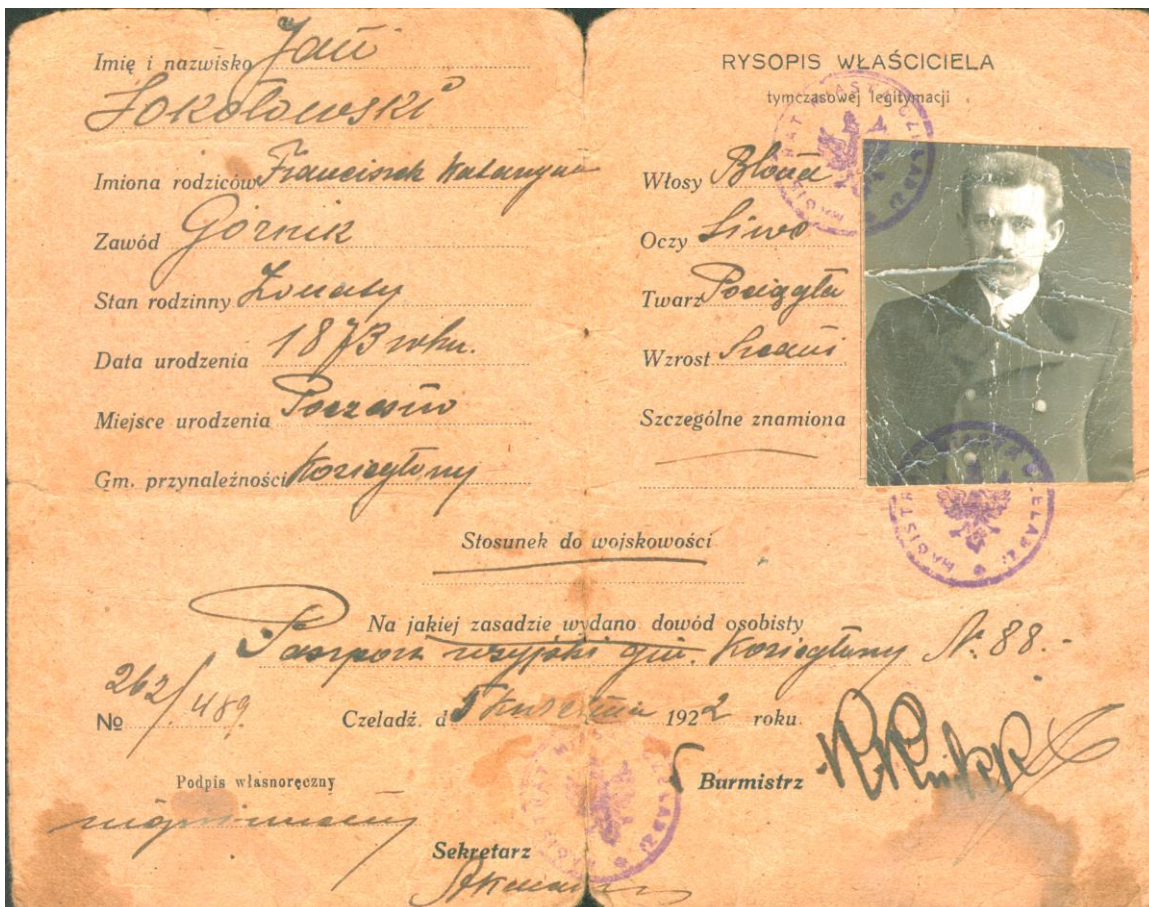 Imię i nazwisko Jan
Sokołowski
Imiona rodziców Franciszek Katarzyna
Zawód Górnik
Stan rodzinny Żonaty
Data urodzenia 1873 roku.
Miejsce urodzenia Poczesno
Gm. przynależności Koziegłowy
RYSOPIS WŁAŚCICIELA
tymczasowej legitymacji
Włosy Blond
Oczy Siwe
Twarz Pociągła
Wzrost Średni
Szczególne znamiona
MAGISTRAT CZELADZI
MAGISTRAT CZELADZI
Stosunek do wojskowości
Na jakiej zasadzie wydano dowód osobisty
Paszport rosyjski gm. Koziegłowy N. 88.-
№ 262/489 Czeladź. d 5 1922 roku
Podpis własnoręczny
Burmistrz
niepiśmienny
Sekretarz